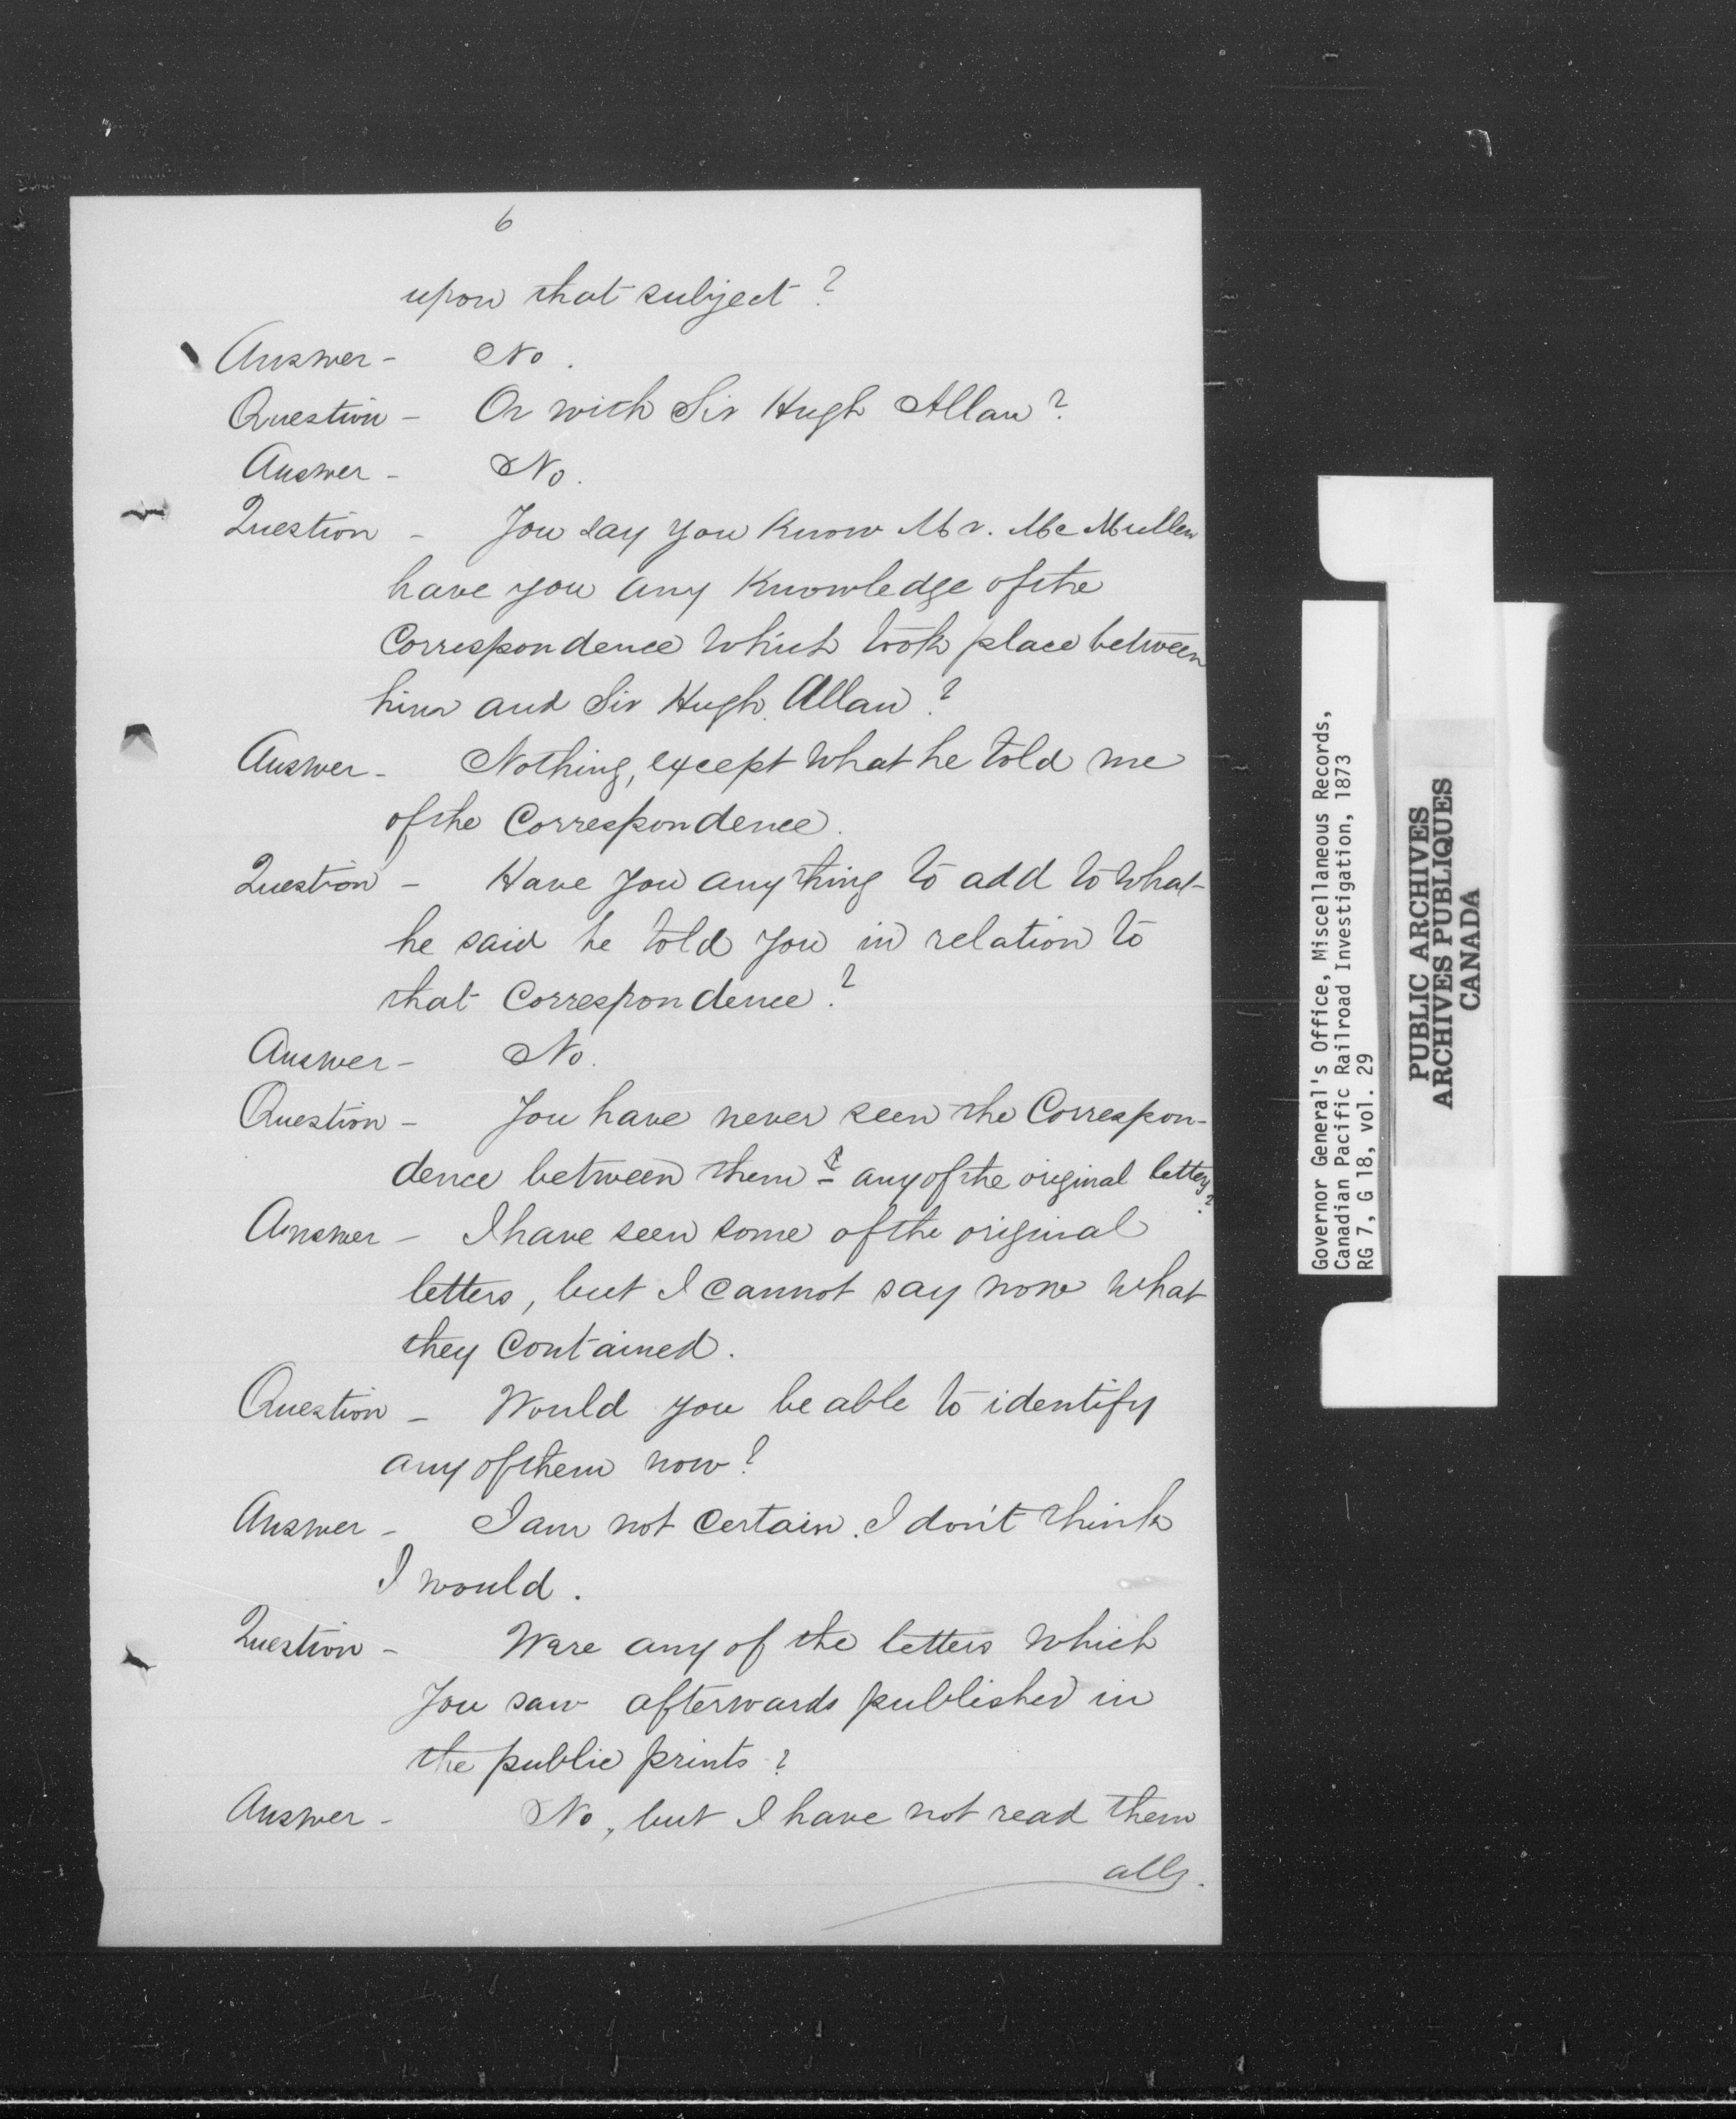 6
upon that subject?
Answer - No.
Question - Or with Sir Hugh Allan?
Answer - No.
Question - You say you know Mr. McMullen
have you any knowledge of the
Correspondence which took place between
him and Sir Hugh Allan?
Answer - Nothing, except what he told me
of the Correspondence.
Question - Have you anything to add to what
he said he told you in relation to
that Correspondence?
Answer - No.
Question - You have never seen the Correspon-
dence between them & any of the original letters?
Answer - I have seen some of the original
letters, but I cannot say now what
they contained.
Question - Would you be able to identify
any of them now?
Answer - I am not certain. I don't think
I would.
Question - Were any of the letters which
you saw afterwards published in
the public prints?
Answer - No, but I have not read them
all.
Governor General's Office, Miscellaneous Records,
Canadian Pacific Railroad Investigation, 1873
RG 7, G 18, vol. 29
PUBLIC ARCHIVES
ARCHIVES PUBLIQUES
CANADA